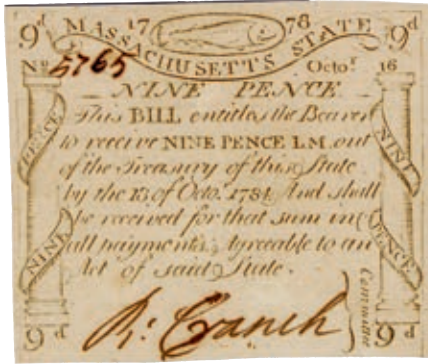 9d 17 78 9d
MASSACHUSETTS STATE
No 5765 Octor 16
NINE PENCE
This BILL entitles the Bearer
to receive NINE PENCE L.M. out
of the Treasury of this State
by the 18 of Octo. 1784 And shall
be received for that sum in
all payments, Agreeable to an
Act of said State.
PENCE
NINE
NINE
PENCE
R: Cranch
Committee
9d 9d